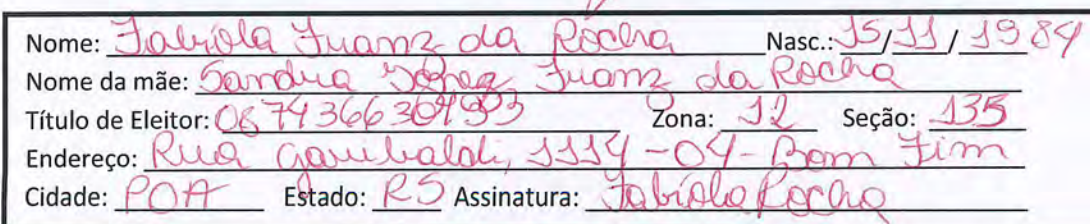 Nome: Fabíola Franz da Rocha Nasc.: 15/11/1984
Nome da mãe: Sandra Franz da Rocha
Título de Eleitor: Zona: 12 Seção: 135
Endereço: Rua Garibaldi, 1114-04-Bom Fim
Cidade: POA Estado: RS Assinatura: Fabíola Rocha